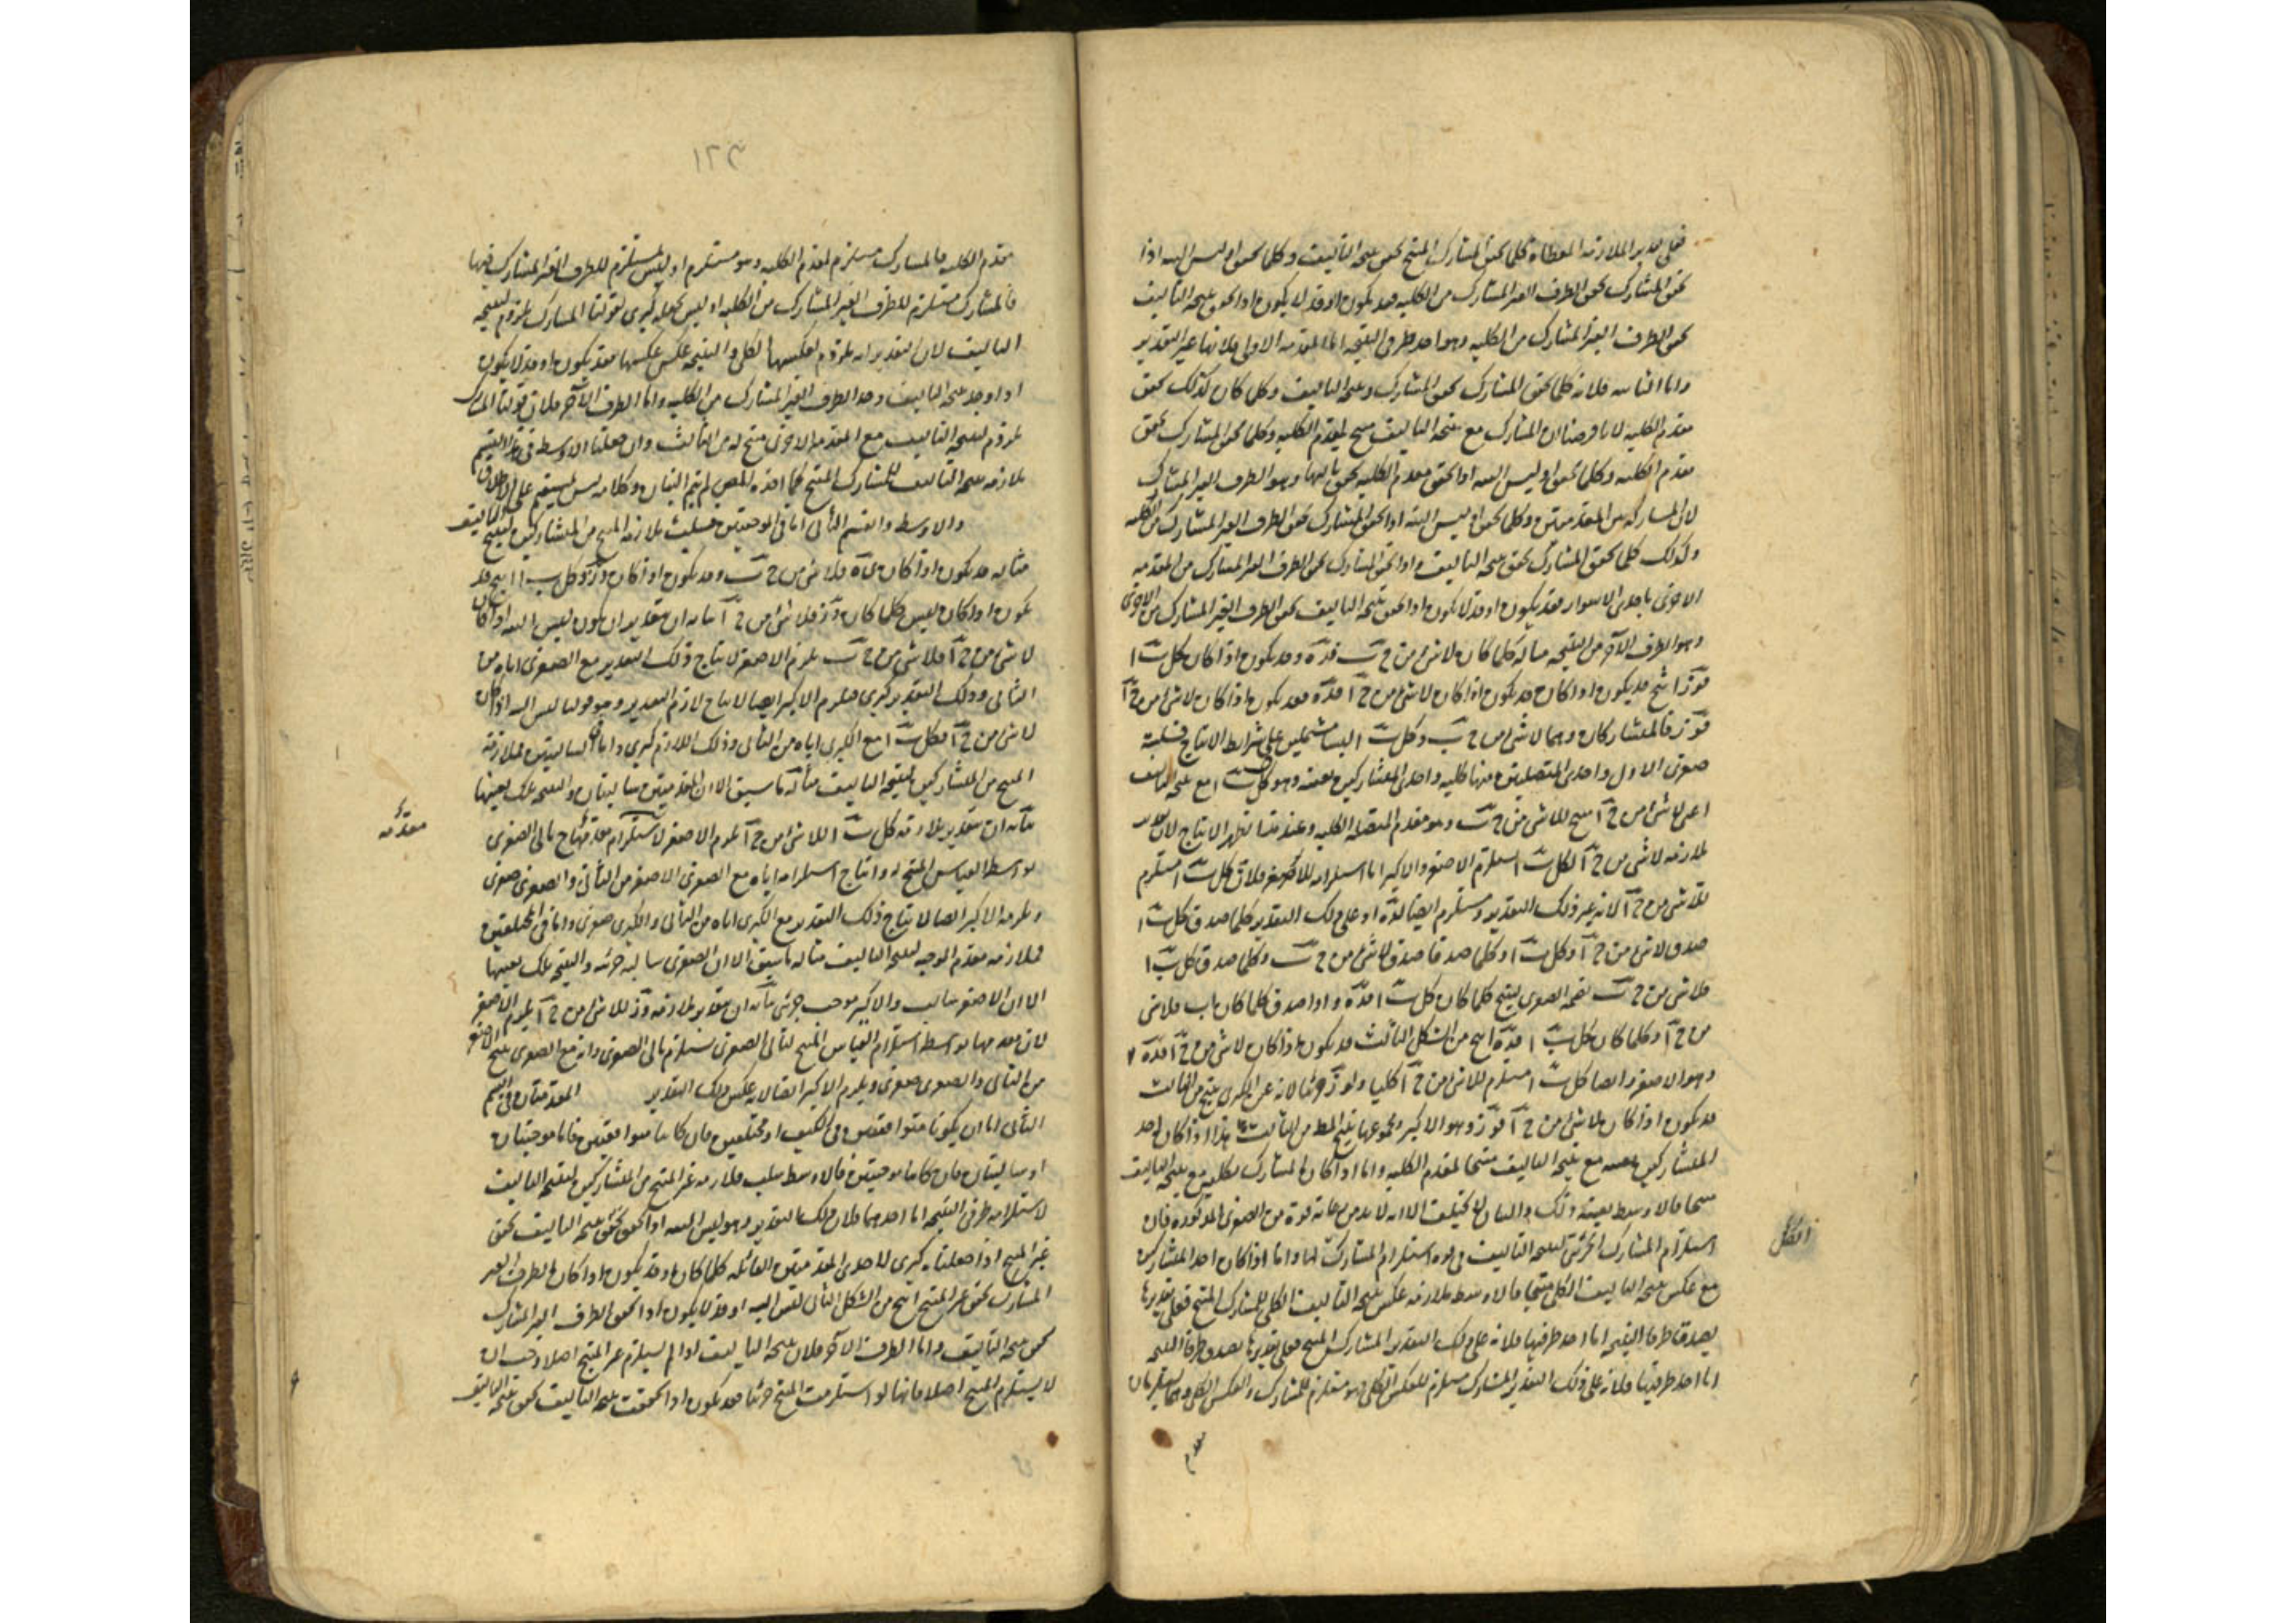 فعلى تقدير الملازمة المعطاة كلما تحقق المشارك المنتج تحقق نتيجة التأليف وكلما تحقق او ليس البتة اذا
تحقق المشارك تحقق الطرف الغير المشارك من الكلية فقد يكون او قد لا يكون اذا تحقق نتيجة التأليف
تحقق الطرف الغير المشارك من الكلية وهو احد طرفى النتيجة اما المقدمة الاولى فلانها عين التقدير
واما الثانية فلانه كلما تحقق المشارك تحقق المشارك ونتيجة التأليف وكلما كان كذلك تحقق
مقدم الكلية لانا فرضنا ان المشارك مع نتيجة التأليف منتج لمقدم الكلية وكلما تحقق المشارك تحقق
مقدم الكلية وكلما تحقق او ليس البتة اذا تحقق مقدم الكلية تحقق تاليها وهو الطرف الغير المشارك
لان المشاركة من المقدمتين وكلما تحقق او ليس البتة اذا تحقق المشارك تحقق الطرف الغير المشارك من الكلية
وكذلك كلما تحقق المشارك تحقق نتيجة التأليف واذا تحقق المشارك تحقق الطرف الغير المشارك من المقدمة
الاخرى باحدى الاسوار فقد يكون او قد لا يكون اذا تحقق نتيجة التأليف تحقق الطرف الغير المشارك من الاخرى
وهو الطرف الآخر من النتيجة مثاله كلما كان لا شئ من ج ب فده وقد يكون اذا كان كل ب ا
فوز انتج قد يكون اذا كان قد يكون اذا كان لا شئ من ج ا فده فقد يكون اذا كان لا شئ من ج ا
فوز فالمتشاركان وهما لا شئ من ج ب وكل ب ا ليسا مشتملين على شرائط الانتاج فسلبية
صغرى الاول واحدى المتصلتين منها كلية واحدى المتشاركين بعينه وهو كل ب ا مع نتيجة التأليف
اعنى لا شئ من ج ا منتج للا شئ من ج ب وهو مقدم المتصلة الكلية وعند هذا يظهر الانتاج لان تقدير
ملازمة لا شئ من ج ا لكل ب ا يستلزم الاصغر والاكبر اما استلزامه للاصغر فلان كل ب ا يستلزم
للا شئ من ج ا لانه عين ذلك التقدير ومستلزم ايضا لده او على ذلك التقدير كلما صدق كل ب ا
صدق لا شئ من ج ا وكل ب ا وكلما صدقا صدق لا شئ من ج ب وكلما صدق كل ب ا
فلا شئ من ج ب نضمه الصغرى لينتج كلما كان كل ب ا فده واذا صدق كلما كان ا ب فلا شئ
من ج ا وكلما كان كل ب ا فده انتج من الشكل الثالث قد يكون اذا كان لا شئ من ج ا فده
وهو الاصغر وايضا كل ب ا مستلزم للا شئ من ج ا كليا ولوز جزئيا لانه عين الكبرى ينتج من الثالث
قد يكون اذا كان لا شئ من ج ا فوز وهو الاكبر ومجموعهما ينتج المط من الثالث هذا اذا كان احد
المتشاركين بعينه مع نتيجة التأليف منتجا لمقدم الكلية واما اذا كان المشارك الكلى مع نتيجة التأليف
منتجا فالاوسط بعينه ذلك والبيان لا يختلف الا انه لا بد من رعاية قوة من الصغرى المذكورة فان
استلزام المشارك الجزئى لنتيجة التأليف فى قوة استلزام المشارك لها واما اذا كان احد المتشاركين
مع عكس نتيجة التأليف الكلى منتجا فالاوسط ملازمة عكس نتيجة التأليف الكلى للمشارك المنتج فعلى تقديرها
يصدق طرفا النتيجة اما احد طرفيها فلانه على ذلك التقدير المشارك المنتج فعلى تقديرها يصدق طرفا النتيجة
اما احد طرفيها فلانه على ذلك التقدير المشارك مستلزم للعكس الكلى فهو مستلزم للمشارك والعكس الكلى وهما يستلزمان
الكل
١٢٣
مقدم الكلية فالمشارك مستلزم لمقدم الكلية وهو مستلزم او ليس بمستلزم للطرف الغير المشارك فيها
فالمشارك مستلزم للطرف الغير المشارك من الكلية او ليس نجعله كبرى لقولنا المشارك ملزوم لنتيجة
التأليف لان التقدير انه ملزوم لعكسها الكلى والنتيجة عكس عكسها فقد يكون او قد لا يكون
اذا وجد نتيجة التأليف وجد الطرف الغير المشارك من الكلية واما الطرف الآخر فلان قولنا المشارك
ملزوم لنتيجة التأليف مع المقدمة الاخرى منتج له من الثالث وان جعلنا الاوسط فى هذا القسم
ملازمة نتيجة التأليف للمشارك المنتج كما اخذه المص لم يتم البيان وكلامه ليس بمستقيم على الاطلاق
والاوسط فى القسم الثانى اما فى الموجبتين فسلب ملازمة المنتج من المتشاركين لنتيجة التأليف
مثاله قد يكون اذا كان ده فلا شئ من ج ب وقد يكون اذا كان وز وكل ب ا انتج قد
يكون اذا كان ليس كلما كان وز فلا شئ من ج ا بيانه ان تقدير ان يكون ليس البتة اذا كان
لا شئ من ج ا فلا شئ من ج ب يلزم الاصغر لانتاج ذلك التقدير مع الصغرى اياه من
الثانى وذلك التقدير كبرى ويلزم الاكبر ايضا لانتاج لازم التقدير وهو قولنا ليس البتة اذا كان
لا شئ من ج ا فكل ب ا مع الكبرى اياه من الثانى وذلك اللازم كبرى واما فى السالبتين فملازمة
المنتج من المتشاركين لنتيجة التأليف مثاله ما سبق الا ان المقدمتين سالبتان والنتيجة تلك بعينها
بيانه ان تقدير ملازمة كل ب ا للا شئ من ج ا يلزم الاصغر لاستلزام مقدمها تالى الصغرى
مقدمه
بواسطة القياس المنتج له وانتاج استلزامه اياه مع الصغرى الاصغر من الثانى والصغرى صغرى
ويلزمه الاكبر ايضا لانتاج ذلك التقدير مع الكبرى اياه من الثانى والكبرى صغرى واما فى المختلفتين
فملازمة مقدم الموجبة لنتيجة التأليف مثاله ما سبق الا ان الصغرى سالبة جزئية والنتيجة تلك بعينها
الا ان الاصغر سالب والاكبر موجب جزئى بيانه ان تقدير ملازمة وز للا شئ من ج ا يلزم الاصغر
لان مقدمها بواسطة استلزام القياس المنتج لتالى الصغرى يستلزم تالى الصغرى وانه مع الصغرى ينتج الاصغر
من الثانى والصغرى صغرى ويلزم الاكبر ايضا لانه عكس ذلك التقدير المقدمتان فى القسم
الثانى اما ان يكونا متوافقتين فى الكيف او مختلفتين فان كانتا متوافقتين فاما موجبتان
او سالبتان فان كانتا موجبتين فالاوسط سلب ملازمة غير المنتج من المتشاركين لنتيجة التأليف
لاستلزامه طرفى النتيجة اما احدهما فلان ذلك التقدير وهو ليس البتة اذا تحقق نتيجة التأليف تحقق
غير المنتج اذا جعلناه كبرى لاحدى المقدمتين القائلة كلما كان او قد يكون اذا كان الطرف الغير
المشارك تحقق غير المنتج انتج من الشكل الثانى ليس البتة او قد لا يكون اذا تحقق الطرف الغير المشارك
تحقق نتيجة التأليف واما الطرف الآخر فلان نتيجة التأليف اذا لم يستلزم غير المنتج اصلا وجب ان
لا يستلزم المنتج اصلا فانها لو استلزمت المنتج جزئيا فقد يكون اذا تحققت نتيجة التأليف تحقق نتيجة التأليف